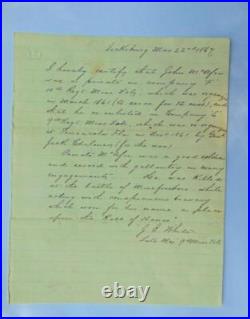 Vicksburg Mar 22nd 1867
I hereby certify that John McAfee
was a private in company
10th Regt Miss Vols, which was
in March 1861 (to serve for 12 mos), and
that he re enlisted in Company
9th Regt Miss Vols, which was
at Pensacola Fla in Dec 1861 by
(for the war)
Private McAfee was a good soldier
and served with gallantry in many
engagements. He was killed
at the battle of Murfreesboro while
acting with conspicuous bravery
which won for his name a place
upon the "Roll of Honor"
Late Maj 9th Miss Vols